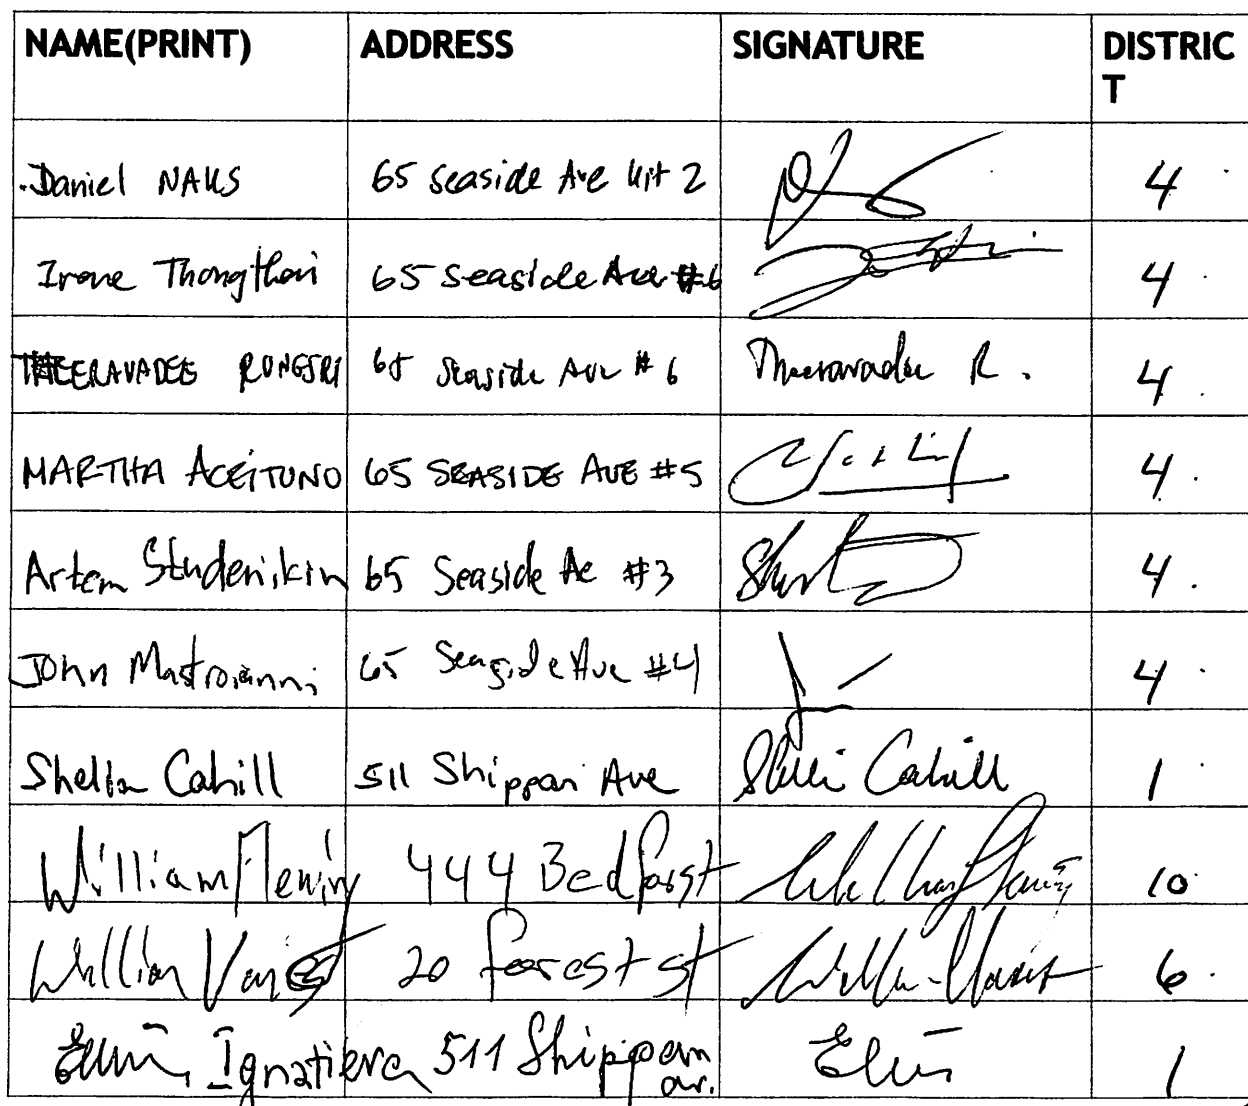 NAME(PRINT) ADDRESS SIGNATURE DISTRIC
T
Daniel NAKS 65 Seaside Ave Unit 2 4
Irene Thongthai 65 Seaside Ave #6 4
THEERAVADEE RUNGSRI 65 Seaside Ave #6 Theeravadee R. 4
MARTHA ACEITUNO 65 SEASIDE AVE #5 4
Artem Studenikin 65 Seaside Ae #3 4
John Mastroianni 65 Seaside Ave #4 4
Sheila Cahill 511 Shippan Ave Cahill 1
William Fleming 444 Bedford St 10
William 20 forest st William 6
Ignatieva 511 Shippan 1
av.